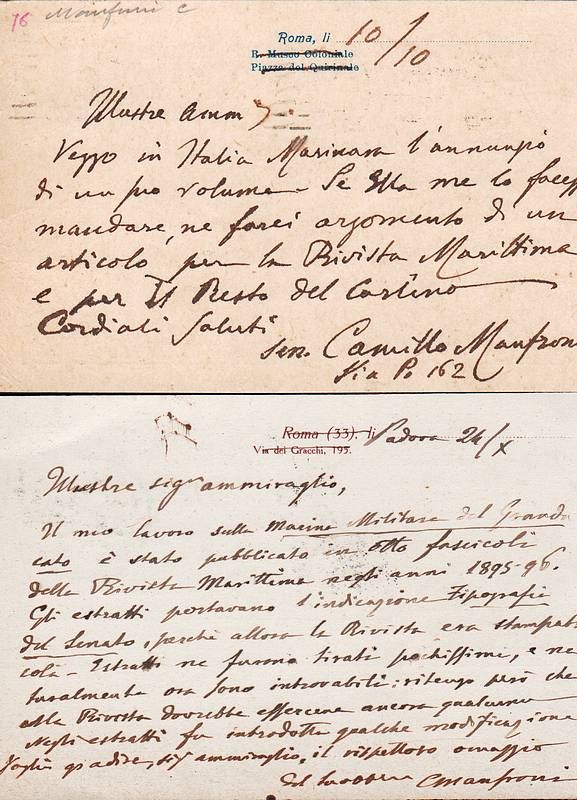 76 Manfroni C
Roma, li 10/10
R. Museo Coloniale
Piazza del Quirinale
Illustre Amm
Veggo in Italia Marinara l'annunzio
di un suo volume. Se Ella me lo facesse
mandare, ne farei argomento di un
articolo per la Rivista Marittima
e per Il Resto del Carlino
Cordiali saluti
sen. Camillo Manfroni
Via Po 162
Roma (33), li Padova 24/X
Via dei Gracchi, 195.
Illustre sigr ammiraglio,
Il mio lavoro sulla Marina Militare del Grandu
cato è stato pubblicato in otto fascicoli
della Rivista Marittima negli anni 1895-96.
Gli estratti portavano l'indicazione Tipografia
del Senato, perchè allora la Rivista era stampata
colà - Estratti ne furono tirati pochissimi, e na
turalmente ora sono introvabili; ritengo però che
alla Rivista dovrebbe essercene ancora qualcuno
Negli estratti fu introdotta qualche modificazione
Voglia gradire, sigr ammiraglio, il rispettoso omaggio
del suo CManfroni